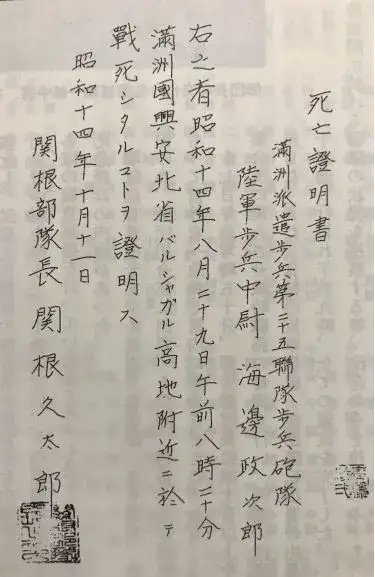 死亡證明書
滿洲派遣步兵第二十五聯隊步兵砲隊
陸軍步兵中尉 海邊政次郎
右之者昭和十四年八月二十九日午前八時二十分
滿洲國興安北省バルシャガル高地附近ニ於テ
戰死シタルコトヲ證明ス
昭和十四年十月十一日
関根部隊長 関根久太郎